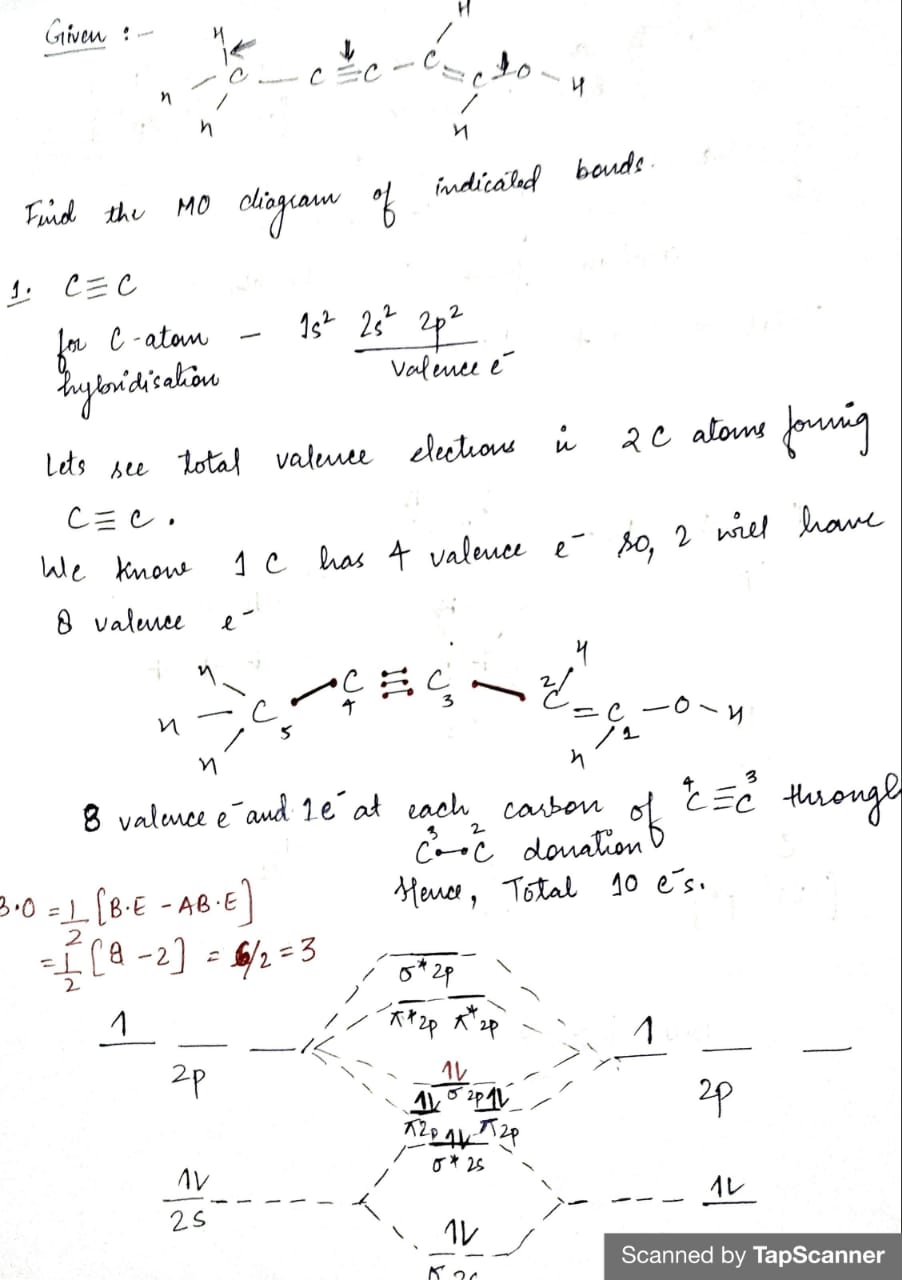 Given :-
H H
H - C - C ≡ C - C = C - O - H
H H
Find the MO diagram of indicated bonds.
1. C≡C
for C-atom - 1s² 2s² 2p²
hybridisation valence e⁻
Lets see total valence electrons in 2 C atoms forming
C≡C.
We know 1 C has 4 valence e⁻ so, 2 will have
8 valence e⁻
H H
H - C - C ≡ C - C = C - O - H
5 4 3 2 1
H H
8 valence e⁻ and 1e⁻ at each carbon of ⁴C≡C³ through
³C—C² donation
Hence, Total 10 e⁻s.
B.O = 1/2 [B.E - AB.E]
= 1/2 [8 - 2] = 6/2 = 3
σ*2p
π*2p π*2p
1 1
2p 2p
1L
σ2p
1L 1L
π2p π2p
1L
σ*2s
1L 1L
2s
1L
Scanned by TapScanner